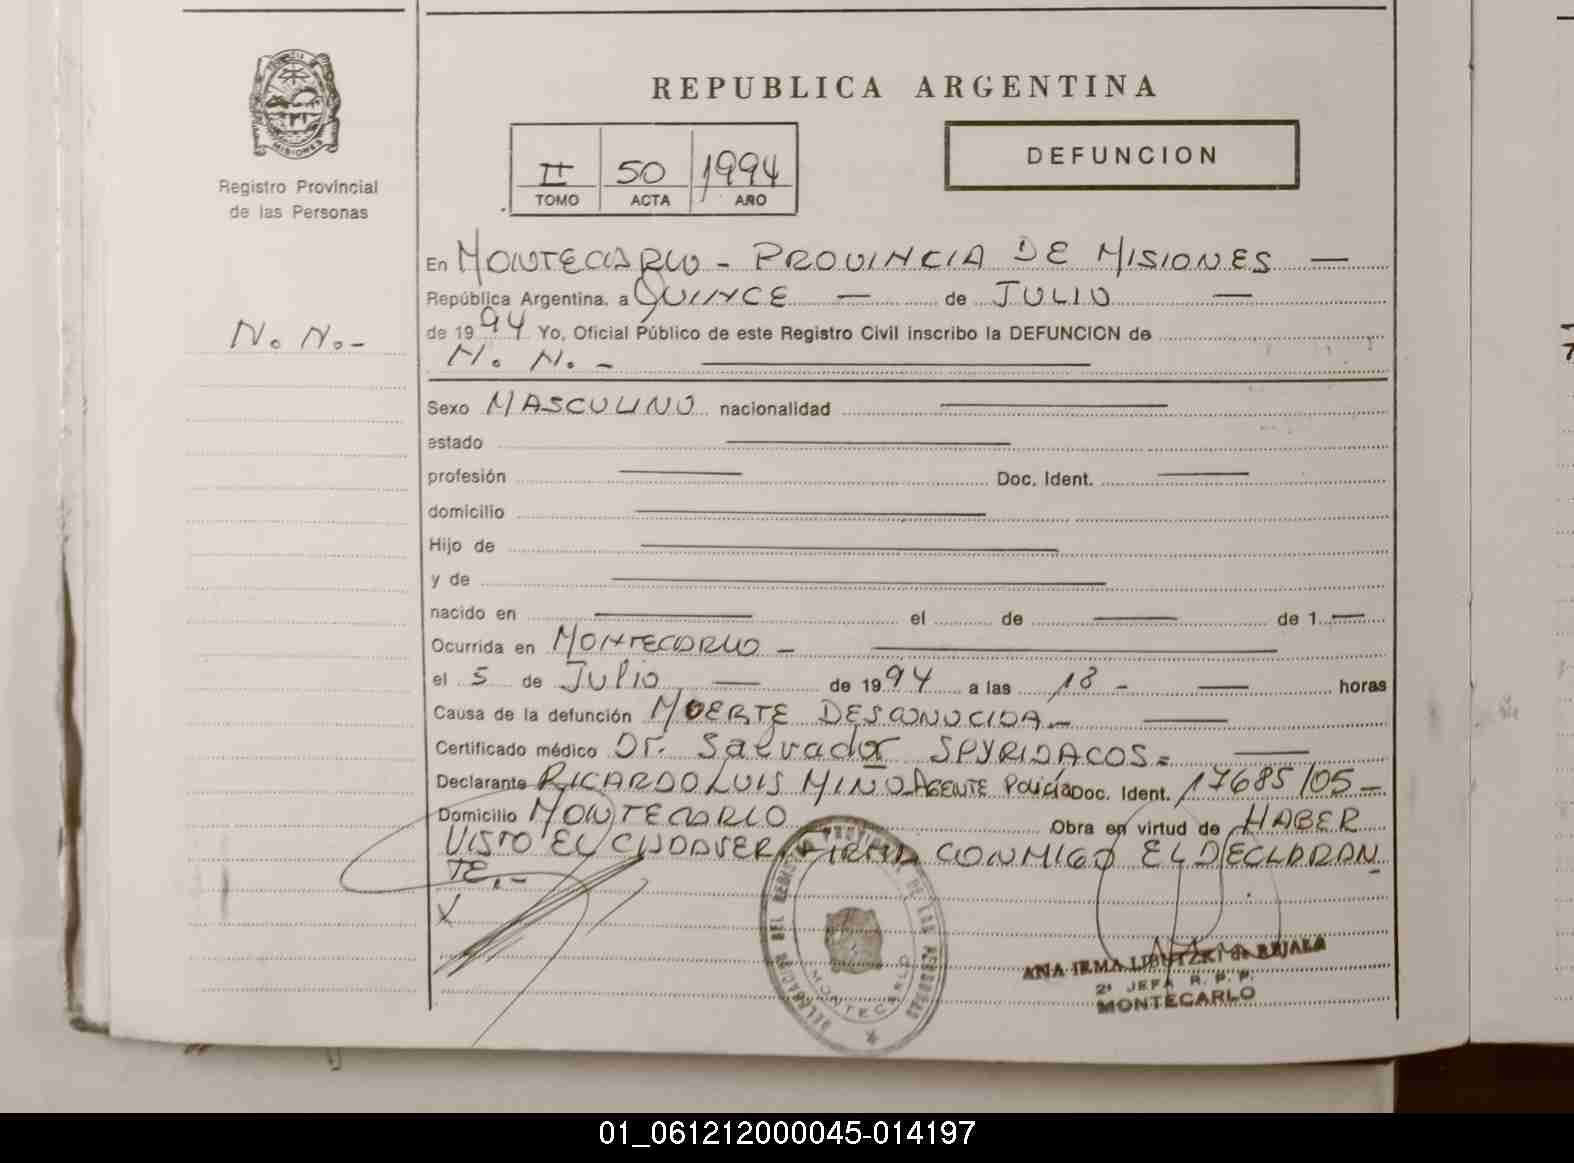 REPUBLICA ARGENTINA
PROVINCIA DE
MISIONES
Registro Provincial
de las Personas
II 50 1994
TOMO ACTA AÑO
DEFUNCION
En MONTECARLO - PROVINCIA DE MISIONES —
República Argentina, a QUINCE — de JULIO —
N. N.-
de 1994 Yo, Oficial Público de este Registro Civil inscribo la DEFUNCION de
N. N. -
Sexo MASCULINO nacionalidad
estado
profesión Doc. Ident.
domicilio
Hijo de
y de
nacido en el de de 1
Ocurrida en MONTECARLO -
el 5 de JULIO — de 1994 a las 18 - — horas
Causa de la defunción MUERTE DESCONOCIDA -
Certificado médico Dr. Salvador SPYRIDACOS =
Declarante RICARDO LUIS MINO - AGENTE Policia Doc. Ident. 17685/05 -
Domicilio MONTECARLO Obra en virtud de HABER
VISTO EL CADAVER, FIRMA CONMIGO EL DECLARAN
TE.-
X
DELEGACION DEL REGISTRO PROVINCIAL DE LAS PERSONAS
MONTECARLO
ANA IRMA
2ª JEFA R. P. P.
MONTECARLO
01_061212000045-014197